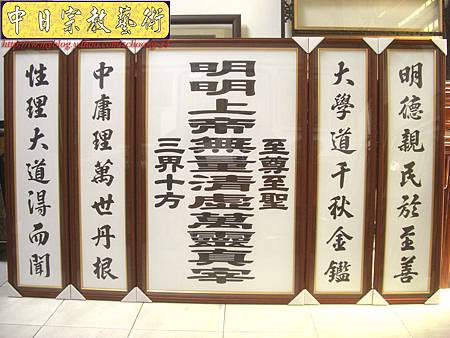 中日宗教藝術
明德親民於至善
大學道千秋金鑑
明明上帝無量清虛
至尊至聖
三界十方
萬靈真宰
中庸理萬世丹根
性理大道淂而聞